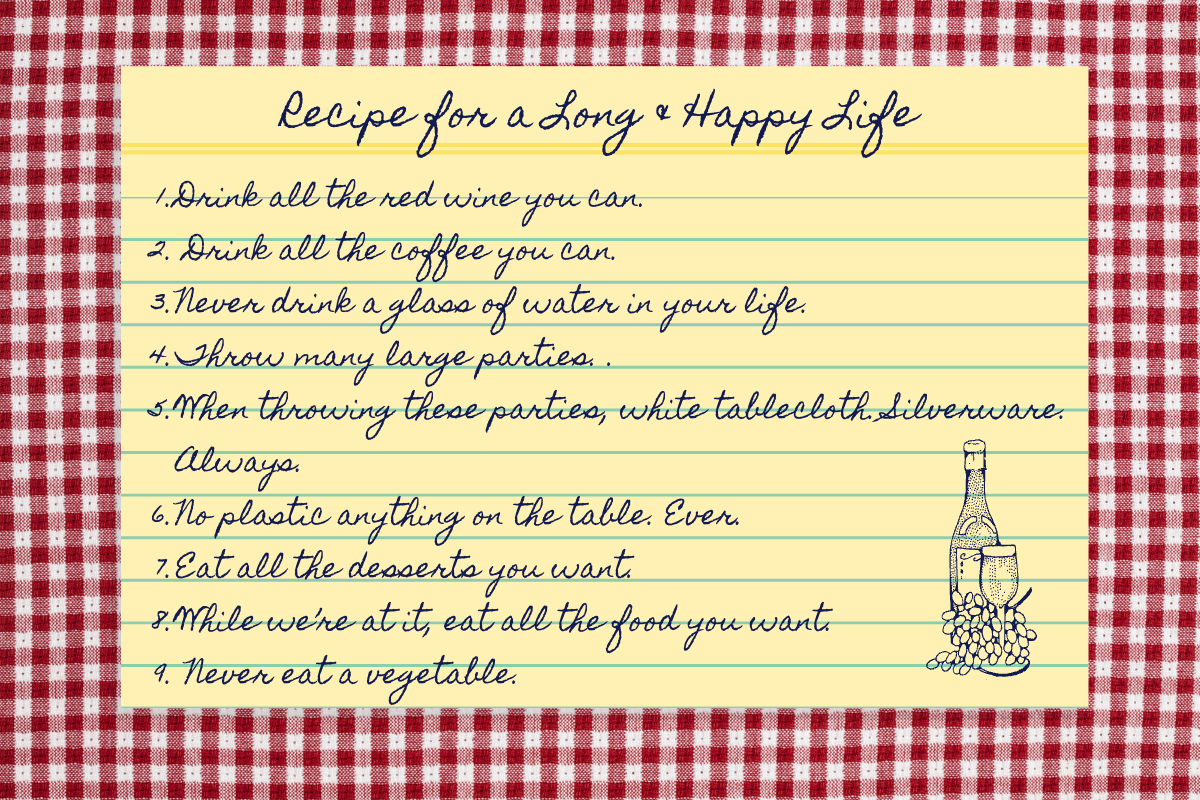 Recipe for a Long & Happy Life
1. Drink all the red wine you can.
2. Drink all the coffee you can.
3. Never drink a glass of water in your life.
4. Throw many large parties. .
5. When throwing these parties, white tablecloth. Silverware.
Always.
6. No plastic anything on the table. Ever.
7. Eat all the desserts you want.
8. While we're at it, eat all the food you want.
9. Never eat a vegetable.